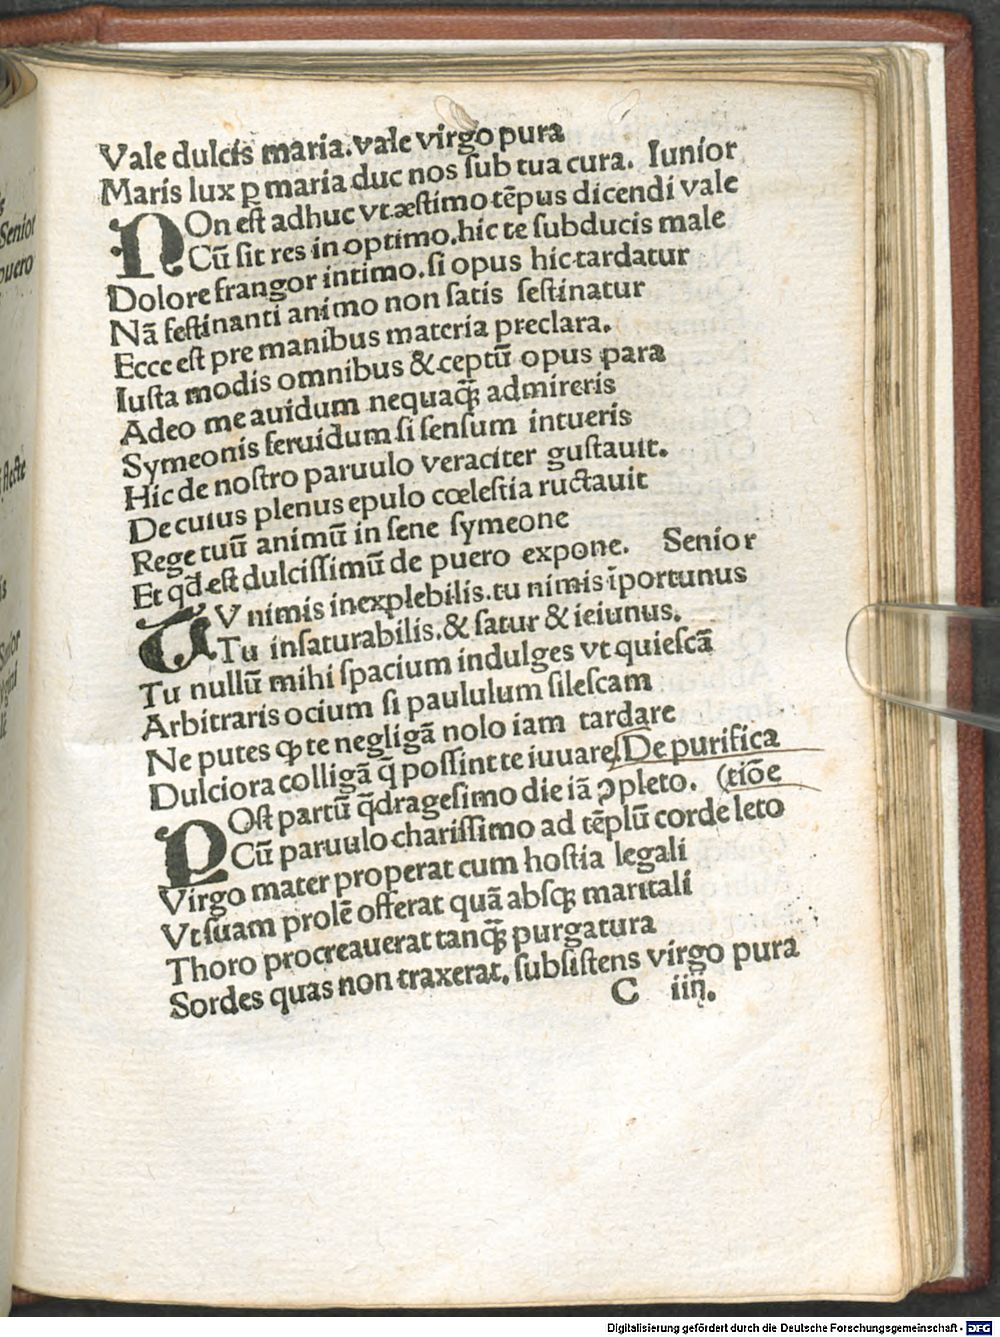 Vale dulcis maria.vale virgo pura
Maris lux ꝑ maria duc nos ſub tua cura. Iunior
NOn eſt adhuc vt æſtimo tẽpus dicendi vale
Cũ ſit res in optimo.hic te ſubducis male
Dolore frangor intimo.ſi opus hic tardatur
Nã feſtinanti animo non ſatis feſtinatur
Ecce eſt pre manibus materia preclara.
Iuſta modis omnibus & ceptũ opus para
Adeo me auidum nequaꝗ̃ admireris
Symeonis feruidum ſi ſenſum intueris
Hic de noſtro paruulo veraciter guſtauit.
De cuius plenus epulo cœleſtia ructauit
Rege tuũ animũ in ſene ſymeone
Et qd̃ eſt dulciſſimũ de puero expone. Senior
TV nimis inexplebilis.tu nimis īportunus
Tu inſaturabilis.& ſatur & ieiunus.
Tu nullũ mihi ſpacium indulges vt quieſcã
Arbitraris ocium ſi paululum ſileſcam
Ne putes ꝙ te negligã nolo iam tardare
Dulciora colligã q̃ poſſint te iuuare De purifica
POſt partũ q̃drageſimo die iã ꝯpleto. (tiõe
Cũ paruulo chariſſimo ad tẽplũ corde leto
Virgo mater properat cum hoſtia legali
Vt ſuam prolẽ offerat quã abſqꝫ maritali
Thoro procreauerat tanꝗ̃ purgatura
Sordes quas non traxerat. ſubſiſtens virgo pura
C iiij.
Senior
puero
flecte
Digitalisierung gefördert durch die Deutsche Forschungsgemeinschaft - DFG